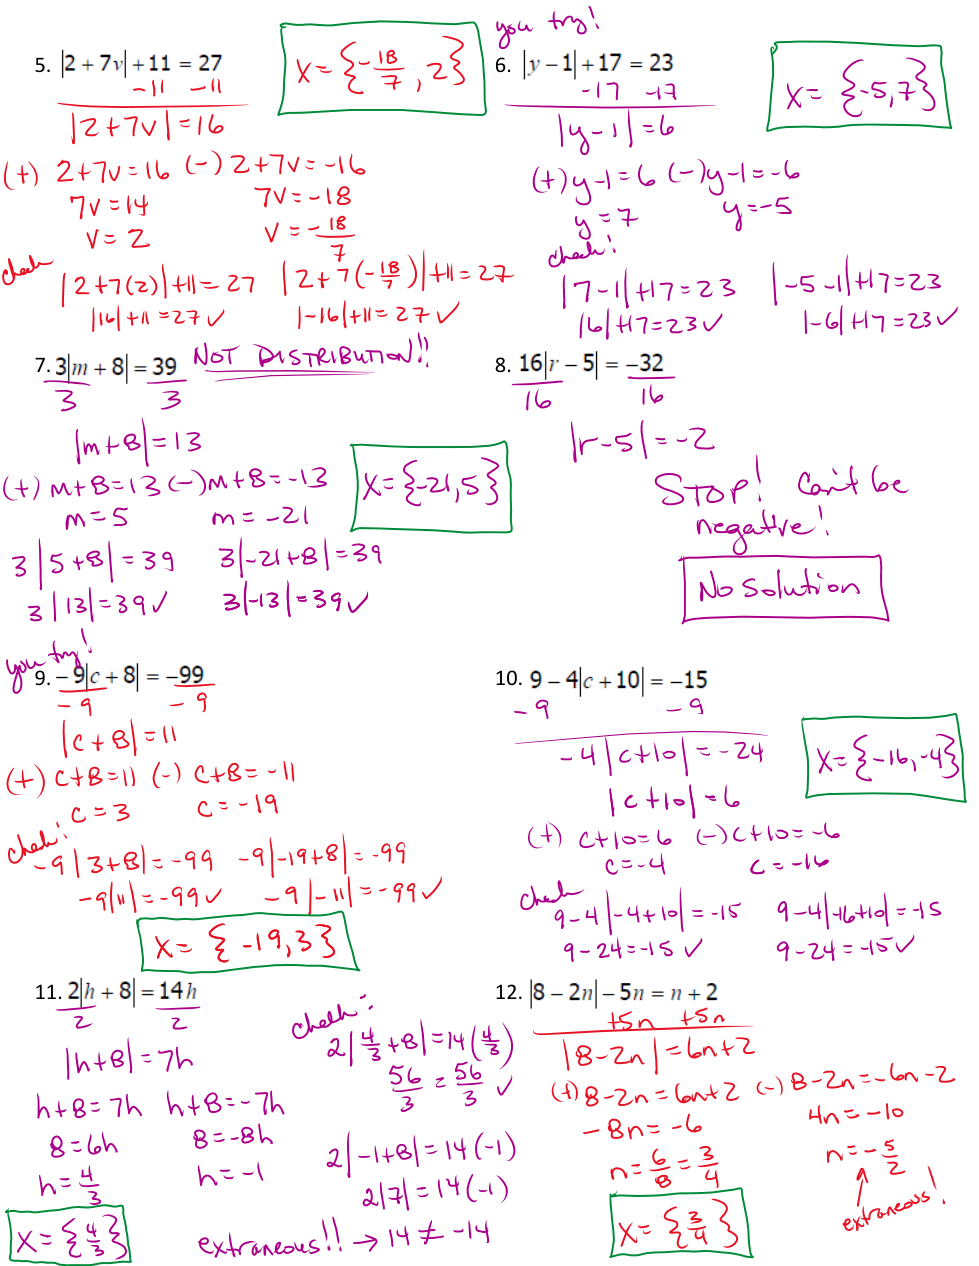 you try!
5. |2 + 7v| + 11 = 27
-11 -11
|2+7v| = 16
X = {-18/7, 2}
(+) 2+7v = 16 (-) 2+7v = -16
7v = 14 7v = -18
v = 2 v = -18/7
check
|2+7(2)|+11 = 27 |2+7(-18/7)|+11 = 27
|16|+11 = 27 ✓ |-16|+11 = 27 ✓
6. |y − 1| + 17 = 23
-17 -17
|y-1| = 6
X = {-5,7}
(+) y-1 = 6 (-) y-1 = -6
y = 7 y = -5
check!
|7-1|+17 = 23 |-5-1|+17 = 23
|6|+17 = 23 ✓ |-6|+17 = 23 ✓
7. 3|m + 8| = 39 NOT DISTRIBUTION!!
3 3
|m+8| = 13
(+) m+8 = 13 (-) m+8 = -13
m = 5 m = -21
X = {-21,5}
3|5+8| = 39 3|-21+8| = 39
3|13| = 39 ✓ 3|-13| = 39 ✓
8. 16|r − 5| = −32
16 16
|r-5| = -2
STOP! Can't be
negative!
No Solution
you try!
9. − 9|c + 8| = −99
-9 -9
|c+8| = 11
(+) c+8 = 11 (-) c+8 = -11
c = 3 c = -19
check!
-9|3+8| = -99 -9|-19+8| = -99
-9|11| = -99 ✓ -9|-11| = -99 ✓
X = {-19,3}
10. 9 − 4|c + 10| = −15
-9 -9
-4|c+10| = -24
|c+10| = 6
X = {-16,-4}
(+) c+10 = 6 (-) c+10 = -6
c = -4 c = -16
check
9-4|-4+10| = -15 9-4|-16+10| = -15
9-24 = -15 ✓ 9-24 = -15 ✓
11. 2|h + 8| = 14h
2 2
|h+8| = 7h
h+8 = 7h h+8 = -7h
8 = 6h 8 = -8h
h = 4/3 h = -1
X = {4/3}
check:
2|4/3+8| = 14(4/3)
56/3 = 56/3 ✓
2|-1+8| = 14(-1)
2|7| = 14(-1)
extraneous!! → 14 ≠ -14
12. |8 − 2n| − 5n = n + 2
+5n +5n
|8-2n| = 6n+2
(+) 8-2n = 6n+2 (-) 8-2n = -6n-2
-8n = -6 4n = -10
n = 6/8 = 3/4 n = -5/2
extraneous!
X = {3/4}